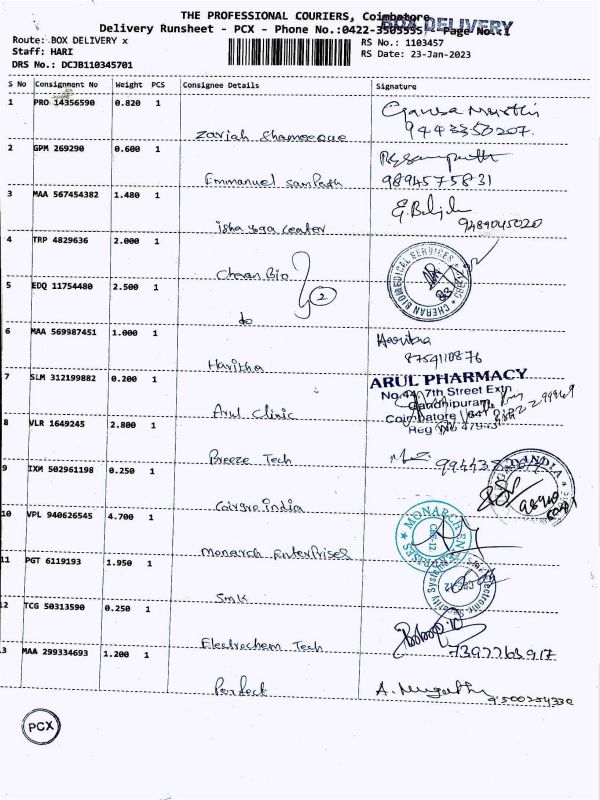 THE PROFESSIONAL COURIERS, Coimbatore
BOX DELIVERY
Delivery Runsheet - PCX - Phone No.:0422-3505555, Page No.:1
Route: BOX DELIVERY x
RS No.: 1103457
Staff: HARI
RS Date: 23-Jan-2023
DRS No.: DCJB110345701
S No Consignment No Weight PCS Consignee Details Signature
1 PRO 14356590 0.820 1
9443350207.
2 GPM 269290 0.600 1
Emmanuel Sampath
9894575831
3 MAA 567454382 1.480 1
isha yoga center
9489045020
4 TRP 4829636 2.000 1
Cheran Bio
2
CHERAN BIOMEDICAL SERVICES
5 EDQ 11754480 2.500 1
do
6 MAA 569987451 1.000 1
Haritha
Haritha
8754110876
7 SLM 312199882 0.200 1
Arul Clinic
ARUL PHARMACY
No.44, 7th Street Extn
Gandhipuram
Coimbatore
Reg No
8 VLR 1649245 2.800 1
Breeze Tech
9 IXM 502961198 0.250 1
India
INDIA
10 VPL 940626545 4.700 1
Monarch Enterprises
MONARCH ENTERPRISES
CBE-12
11 PGT 6119193 1.950 1
SMK
Electronic Security Systems
12 TCG 50313590 0.250 1
Electrochem Tech
7397763917
3 MAA 299334693 1.200 1
Perfect
9500254330
PCX